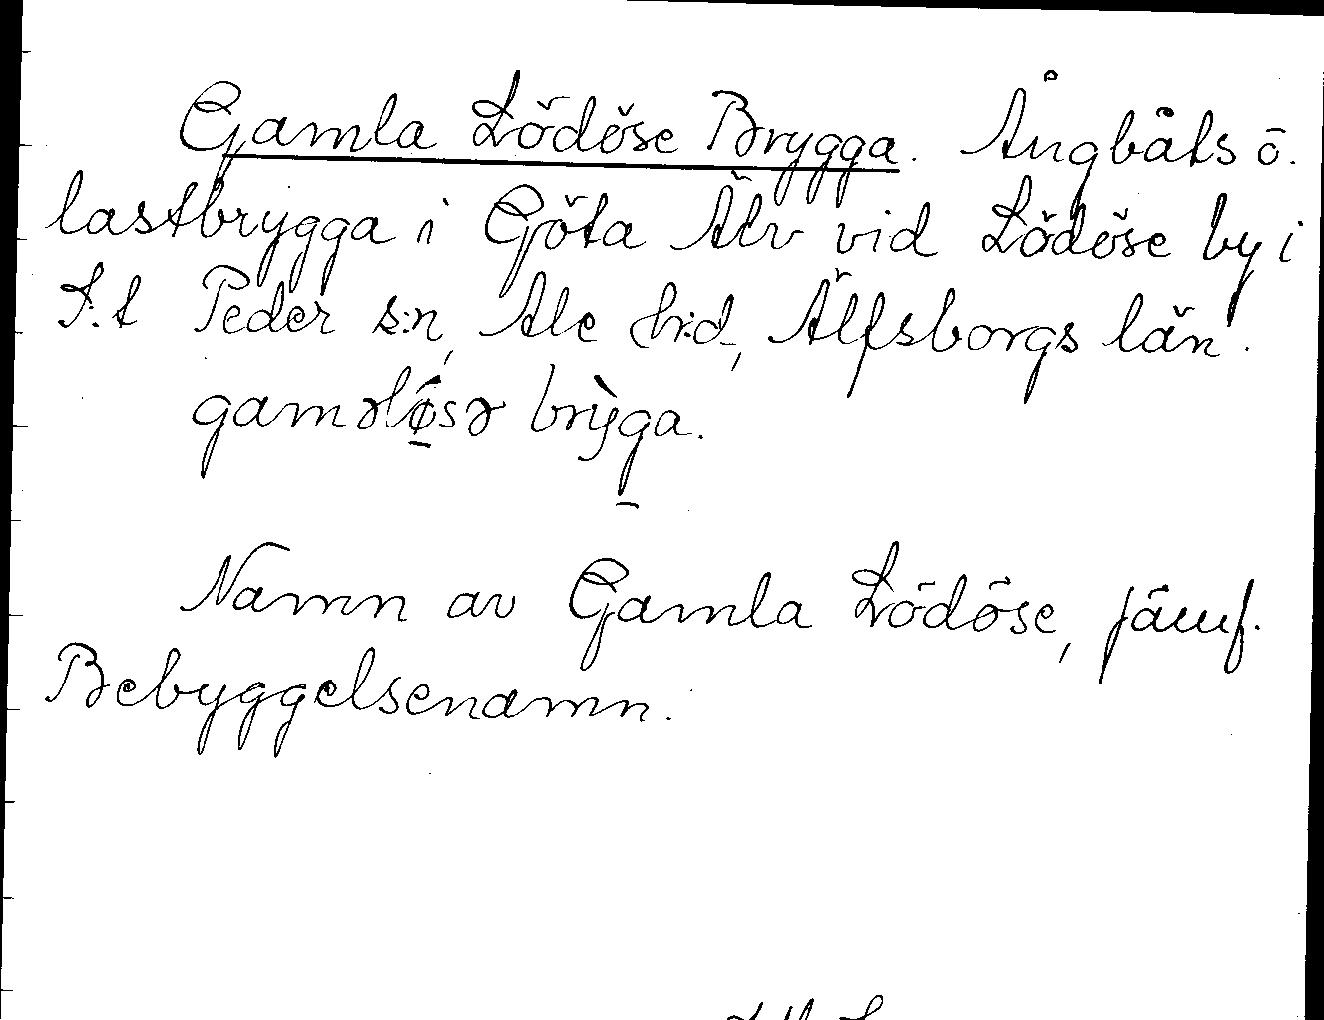 Gamla Lödöse Brygga. Ångbåts o.
lastbrygga i Göta Älv vid Lödöse by i
S:t Peder s:n, Ale hr:d, Älfsborgs län.
gaməlø̀sə brỳga.
Namn av Gamla Lödöse, jämf.
Bebyggelsenamn.